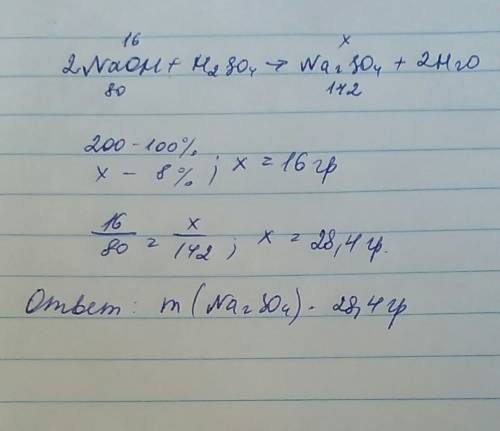 16 x
2NaOH + H2SO4 → Na2SO4 + 2H2O
80 142
200 - 100%
x - 8% ; x = 16 гр
16/80 = x/142 ; x = 28,4 гр.
Ответ: m (Na2SO4) - 28,4 гр